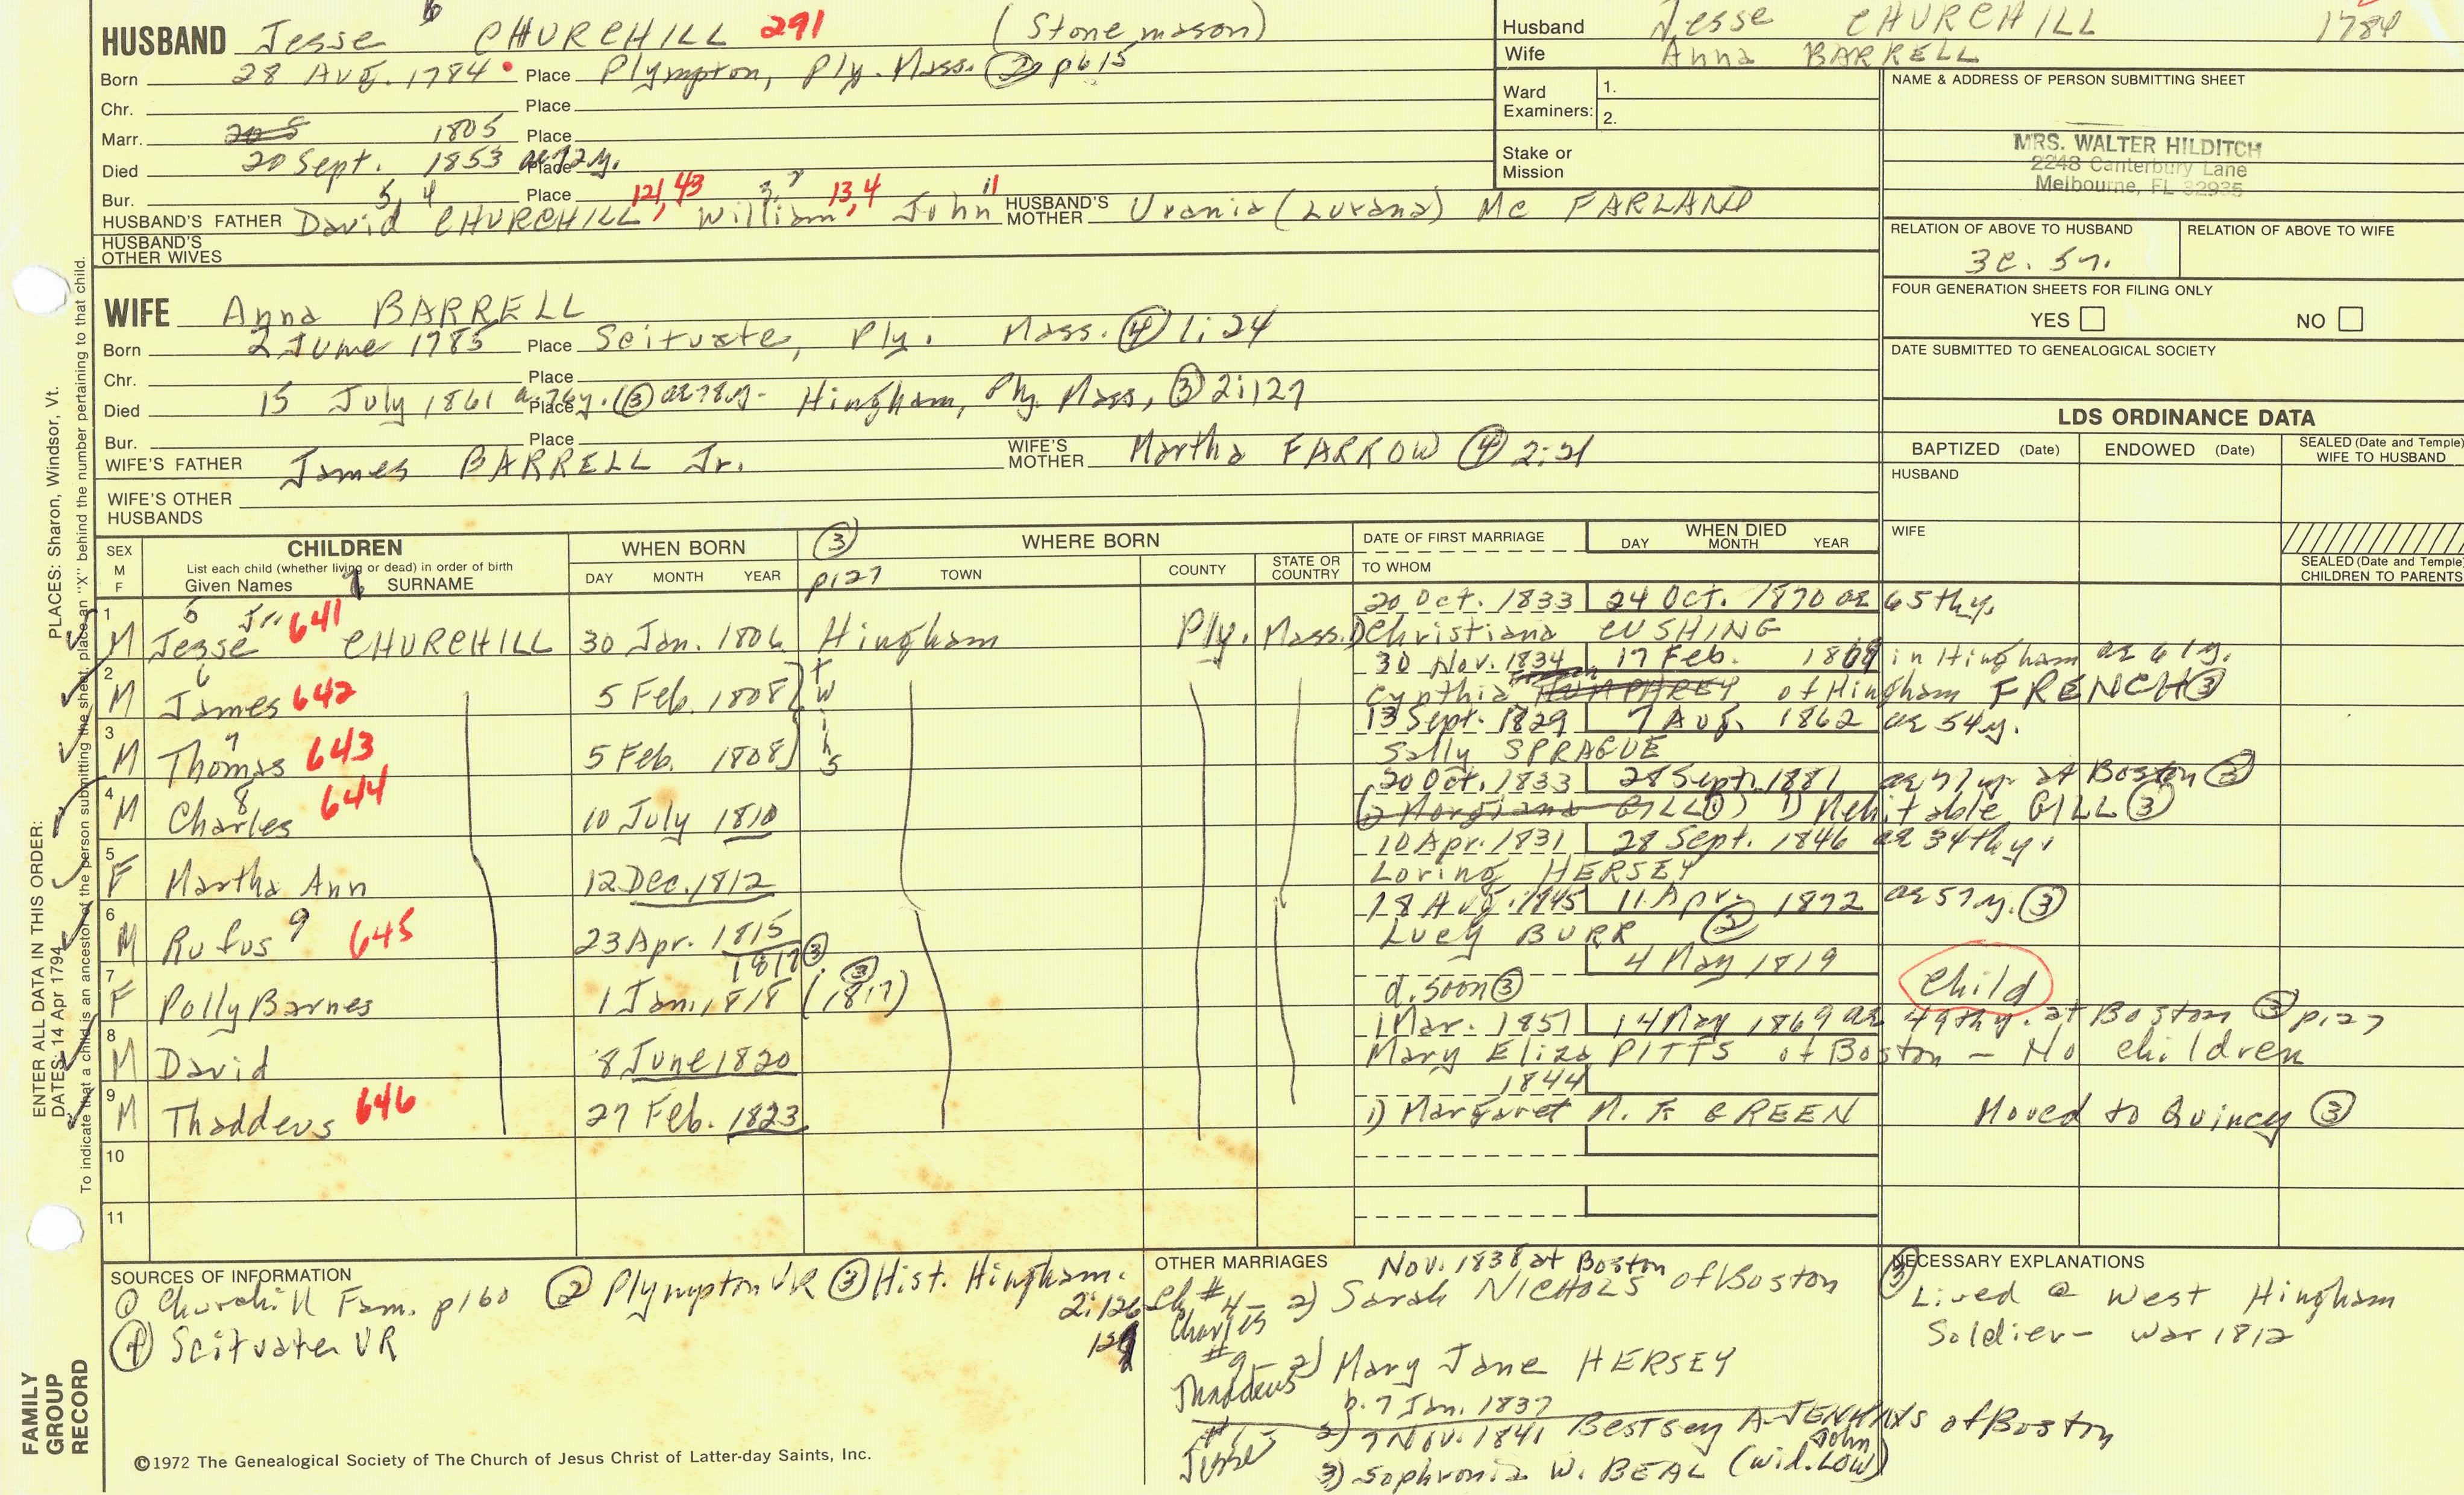 HUSBAND Jesse 6 CHURCHILL 291 (Stone mason)
Born 28 Aug. 1784 Place Plympton, Ply. Mass. ② p615
Chr. Place
Marr. 1805 Place
Died 20 Sept. 1853 ae 72y. Place
Bur. Place
HUSBAND'S FATHER David 5, 4 CHURCHILL 121, 43 William 3, 2 13, 4 John 11 HUSBAND'S MOTHER Urania (Lurana) Mc FARLAND
HUSBAND'S OTHER WIVES
Husband Jesse CHURCHILL 1784
Wife Anna BARRELL
Ward Examiners: 1.
2.
Stake or Mission
NAME & ADDRESS OF PERSON SUBMITTING SHEET
MRS. WALTER HILDITCH
2248 Canterbury Lane
Melbourne, FL 32935
RELATION OF ABOVE TO HUSBAND RELATION OF ABOVE TO WIFE
3c. 5r.
FOUR GENERATION SHEETS FOR FILING ONLY
YES NO
DATE SUBMITTED TO GENEALOGICAL SOCIETY
WIFE Anna BARRELL
Born 2 June 1785 Place Scituate, Ply. Mass. ④ 1:24
Chr. Place
Died 15 July 1861 a. 76y. (③ ae 78y- Place Hingham, Ply. Mass, ③ 2:127
Bur. Place
WIFE'S FATHER James BARRELL Jr. WIFE'S MOTHER Martha FARROW ④ 2:21
WIFE'S OTHER HUSBANDS
LDS ORDINANCE DATA
BAPTIZED (Date) ENDOWED (Date) SEALED (Date and Temple) WIFE TO HUSBAND
HUSBAND
WIFE
SEALED (Date and Temple) CHILDREN TO PARENTS
SEX M F
CHILDREN
List each child (whether living or dead) in order of birth
Given Names SURNAME
WHEN BORN
DAY MONTH YEAR
③ p127
WHERE BORN
TOWN COUNTY STATE OR COUNTRY
DATE OF FIRST MARRIAGE
TO WHOM
WHEN DIED
DAY MONTH YEAR
20 Oct. 1833 24 Oct. 1870 ae 65thy.
1 M Jesse Jr. 641 CHURCHILL 30 Jan. 1806 Hingham Ply. Mass. 1) Christiana CUSHING
30 Nov. 1834 17 Feb. 1869 in Hingham ae 61y.
2 M James 6 642 5 Feb. 1808 twins Cynthia of Hingham FRENCH ③
13 Sept. 1829 7 Aug. 1862 ae 54y.
3 M Thomas 7 643 5 Feb. 1808 Sally SPRAGUE
20 Oct. 1833 28 Sept. 1881 ae 71yr at Boston ③
4 M Charles 8 644 10 July 1810 GILL 1) Mehitable GILL ③
10 Apr. 1831 28 Sept. 1846 ae 34thy.
5 F Martha Ann 12 Dec. 1812 Loring HERSEY
18 Aug. 1845 11 Apr. 1872 ae 57y. ③
6 M Rufus 9 645 23 Apr. 1815 Lucy BURR ③
1817 ③ 4 May 1819
7 F Polly Barnes 1 Jan. 1818 (1817) ③ d. soon ③ Child
1 Mar. 1851 14 May 1869 ae 49thy. at Boston ③ p127
8 M David 8 June 1820 Mary Eliza PITTS of Boston - No children
1844
9 M Thaddeus 646 27 Feb. 1823 1) Margaret M. F. GREEN Moved to Quincy ③
10
11
SOURCES OF INFORMATION
① Churchill Fam. p160 ② Plympton VR ③ Hist. Hingham. 2:126
④ Scituate VR
OTHER MARRIAGES
Nov. 1838 at Boston
Ch #4- Charles 2) Sarah NICHOLS of Boston
#9- Thaddeus 2) Mary Jane HERSEY
b. 7 Jan. 1837
#1 Jesse 2) 7 Nov. 1841 Bestsey A. JENKINS of Boston
3) Sophronia W. BEAL (wid. John LOW)
NECESSARY EXPLANATIONS
③ Lived @ West Hingham
Soldier- War 1812
ENTER ALL DATA IN THIS ORDER:
PLACES: Sharon, Windsor, Vt.
DATES: 14 Apr 1794
To indicate that a child is an ancestor of the person submitting the sheet, place an "X" behind the number pertaining to that child.
FAMILY GROUP RECORD
©1972 The Genealogical Society of The Church of Jesus Christ of Latter-day Saints, Inc.